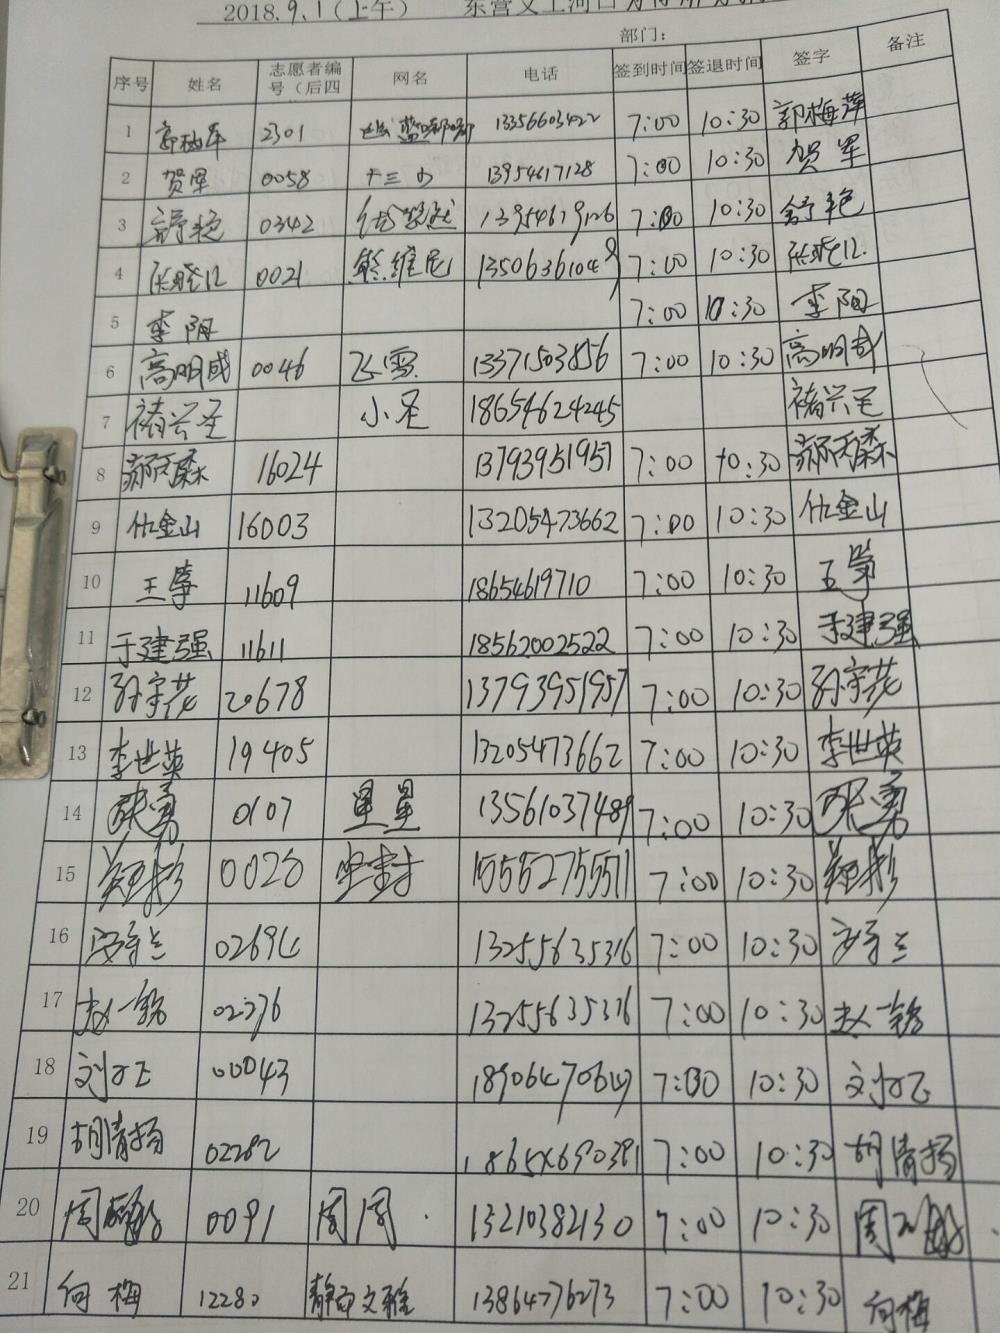 2018.9.1(上午) 东营义工河口
部门:
序号 姓名 志愿者编号(后四 网名 电话 签到时间 签退时间 签字 备注
1 郭梅萍 2301 13356603422 7:00 10:30 郭梅萍
2 贺军 0058 十三少 13954617128 7:00 10:30 贺军
3 舒艳 0342 13954619126 7:00 10:30 舒艳
4 张晓江 0021 熊维尼 13506361049 7:00 10:30 张晓江
5 李阳 7:00 10:30 李阳
6 高明成 0046 飞雪 13371503856 7:00 10:30 高明成
7 褚兴圣 小圣 18654624245 褚兴圣
8 郝丙森 16024 13793951957 7:00 10:30 郝丙森
9 仇金山 16003 13205473662 7:00 10:30 仇金山
10 王 11609 18654619710 7:00 10:30 王
11 于建强 11611 18562002522 7:00 10:30 于建强
12 孙宗花 20678 13793951957 7:00 10:30 孙宗花
13 李世英 19405 13205473662 7:00 10:30 李世英
14 张勇 0107 星星 13561037489 7:00 10:30 张勇
15 15552755511 7:00 10:30
16 13255635316 7:00 10:30
17 赵一铭 02276 13255635316 7:00 10:30 赵一铭
18 刘 00043 7:00 10:30 刘
19 胡清扬 02282 7:00 10:30 胡清扬
20 周 0091 周周 13210382130 7:00 10:30 周
21 何梅 12280 静西文雅 13864776273 7:00 10:30 何梅